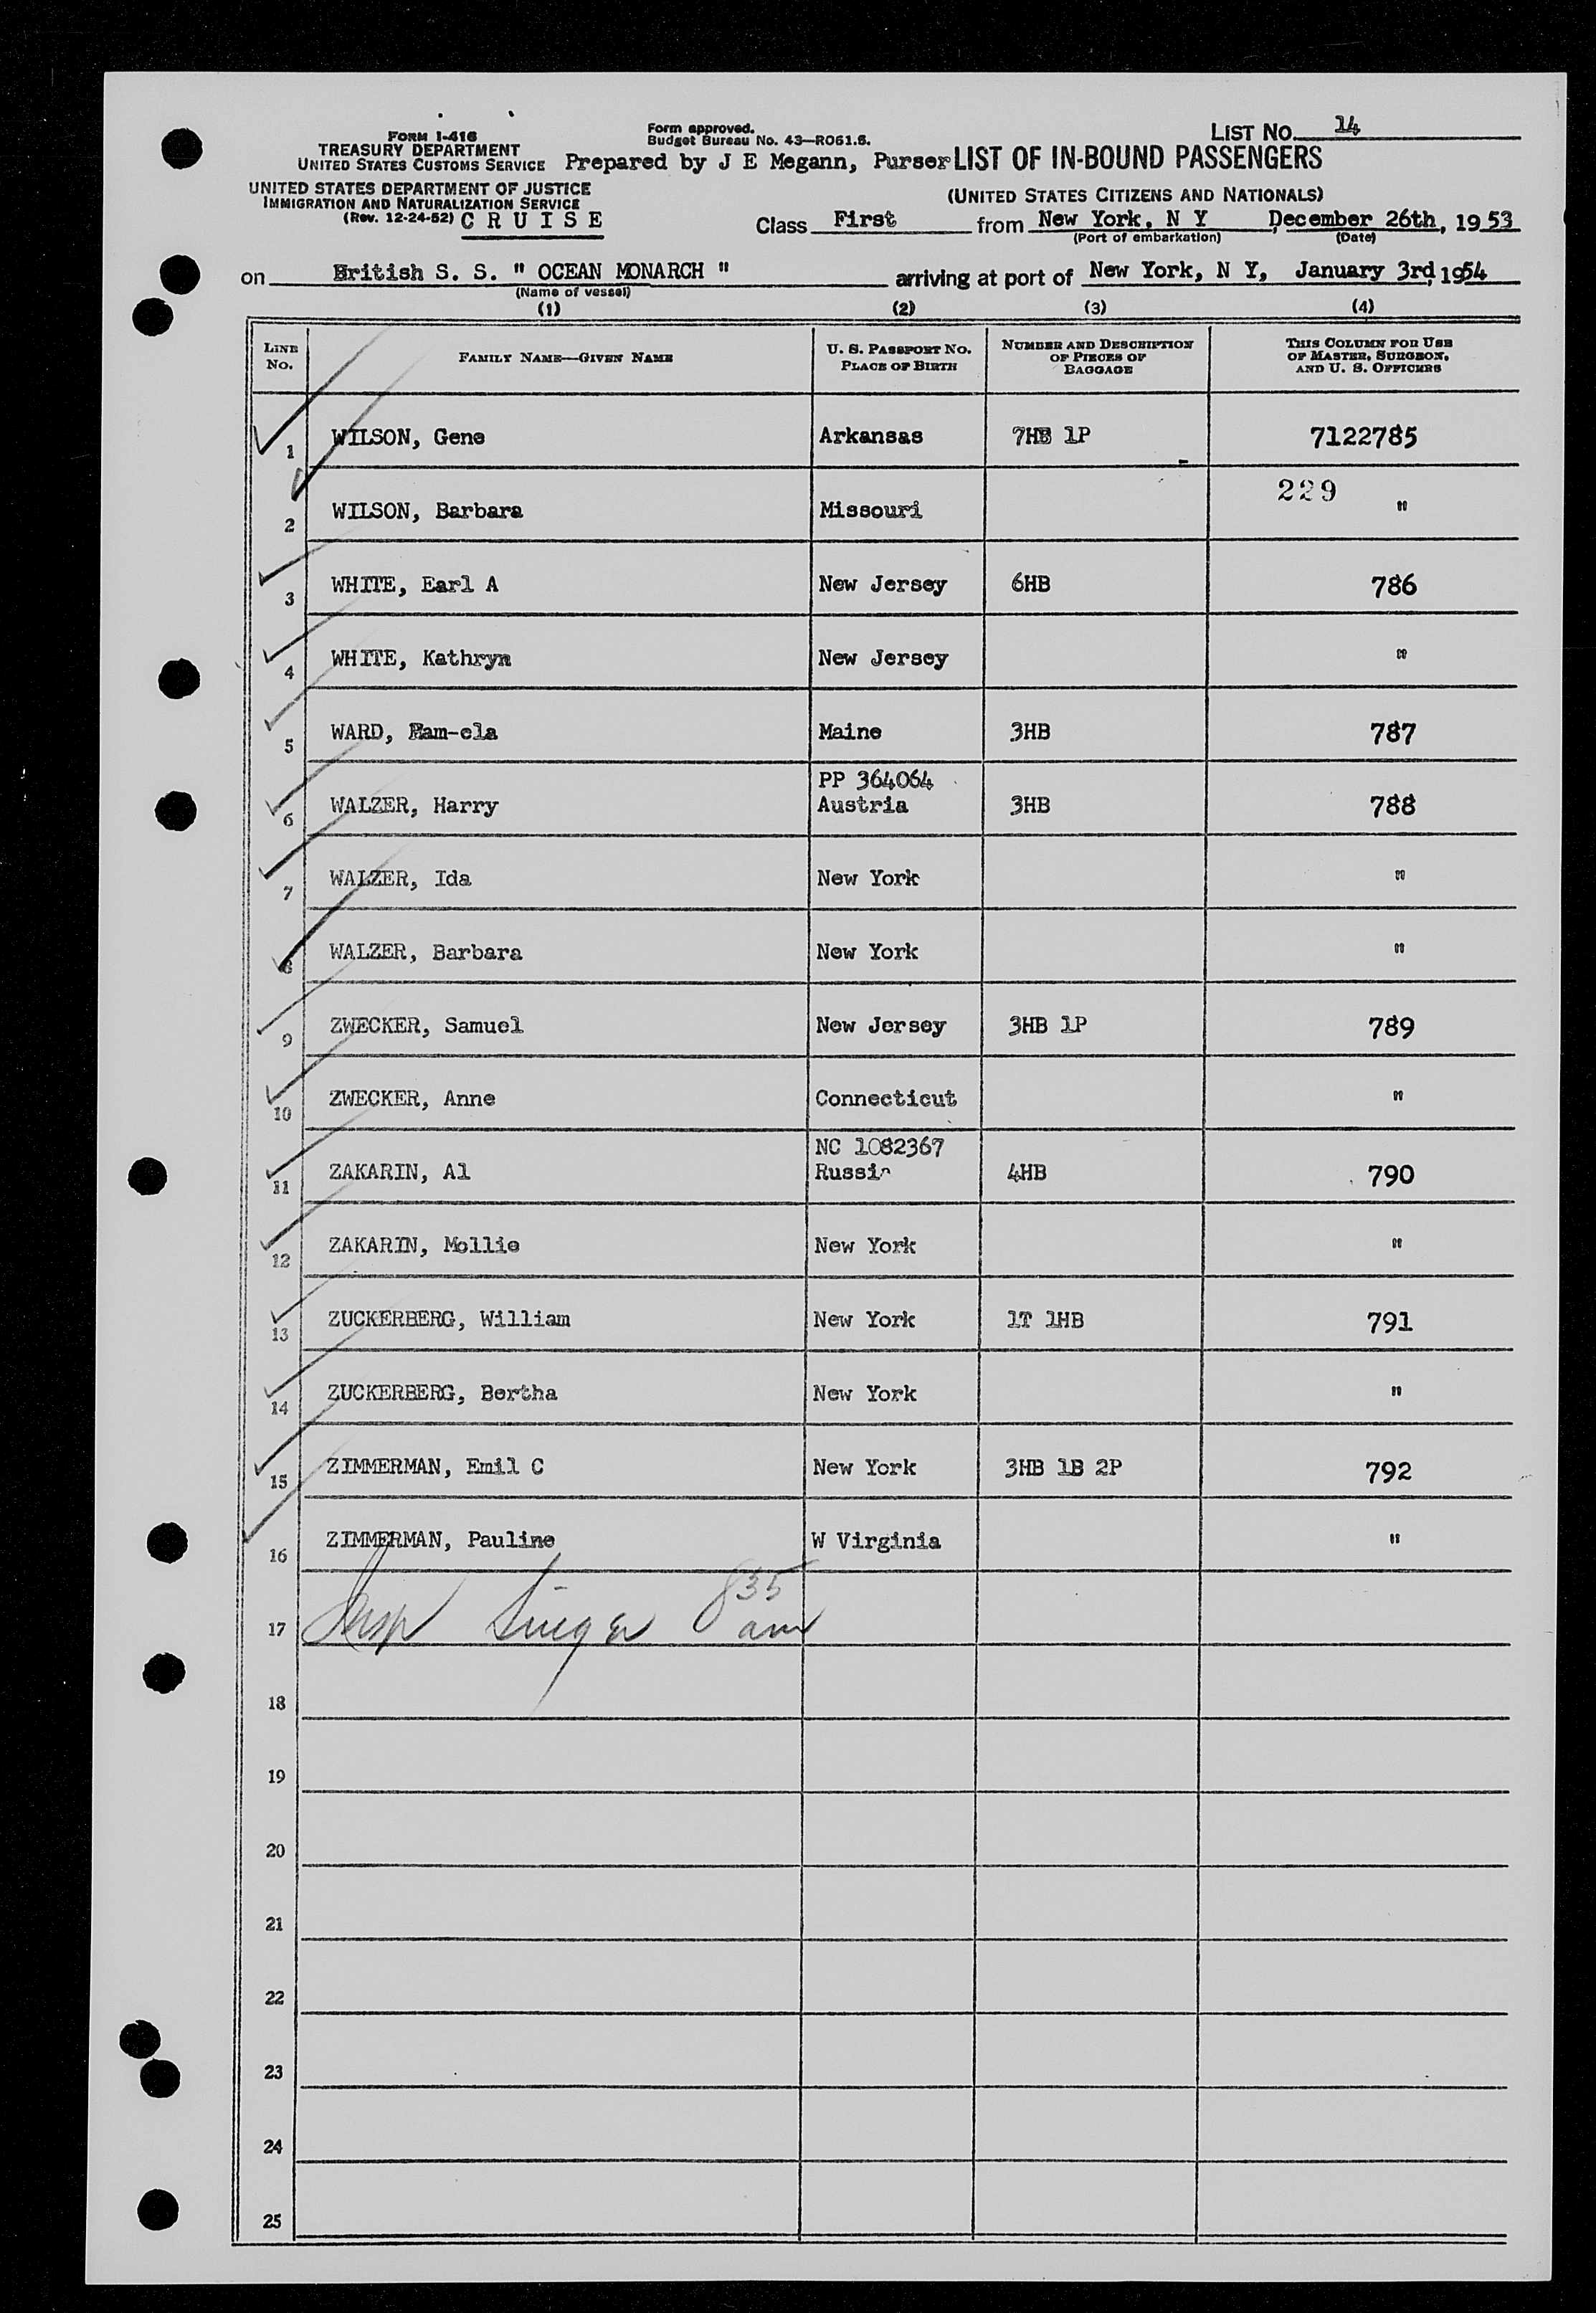 FORM I-416
TREASURY DEPARTMENT
UNITED STATES CUSTOMS SERVICE
UNITED STATES DEPARTMENT OF JUSTICE
IMMIGRATION AND NATURALIZATION SERVICE
(Rev. 12-24-52) C R U I S E
Form approved.
Budget Bureau No. 43—R061.6.
Prepared by J E Megann, Purser
LIST No. 14
LIST OF IN-BOUND PASSENGERS
(UNITED STATES CITIZENS AND NATIONALS)
Class First from New York, N Y December 26th, 1953
(Port of embarkation) (Date)
on British S. S. " OCEAN MONARCH " arriving at port of New York, N Y, January 3rd, 1954
(Name of vessel)
(1) (2) (3) (4)
LINE NO. FAMILY NAME—GIVEN NAME U. S. PASSPORT NO. PLACE OF BIRTH NUMBER AND DESCRIPTION OF PIECES OF BAGGAGE THIS COLUMN FOR USE OF MASTER, SURGEON, AND U. S. OFFICERS
1 WILSON, Gene Arkansas 7HB 1P 7122785
229
2 WILSON, Barbara Missouri "
3 WHITE, Earl A New Jersey 6HB 786
4 WHITE, Kathryn New Jersey "
5 WARD, Pam-ela Maine 3HB 787
PP 364064
6 WALZER, Harry Austria 3HB 788
7 WALZER, Ida New York "
8 WALZER, Barbara New York "
9 ZWECKER, Samuel New Jersey 3HB 1P 789
10 ZWECKER, Anne Connecticut "
NC 1082367
11 ZAKARIN, Al Russia 4HB 790
12 ZAKARIN, Mollie New York "
13 ZUCKERBERG, William New York 1T 1HB 791
14 ZUCKERBERG, Bertha New York "
15 ZIMMERMAN, Emil C New York 3HB 1B 2P 792
16 ZIMMERMAN, Pauline W Virginia "
17 Insp Singer 835 am
18
19
20
21
22
23
24
25